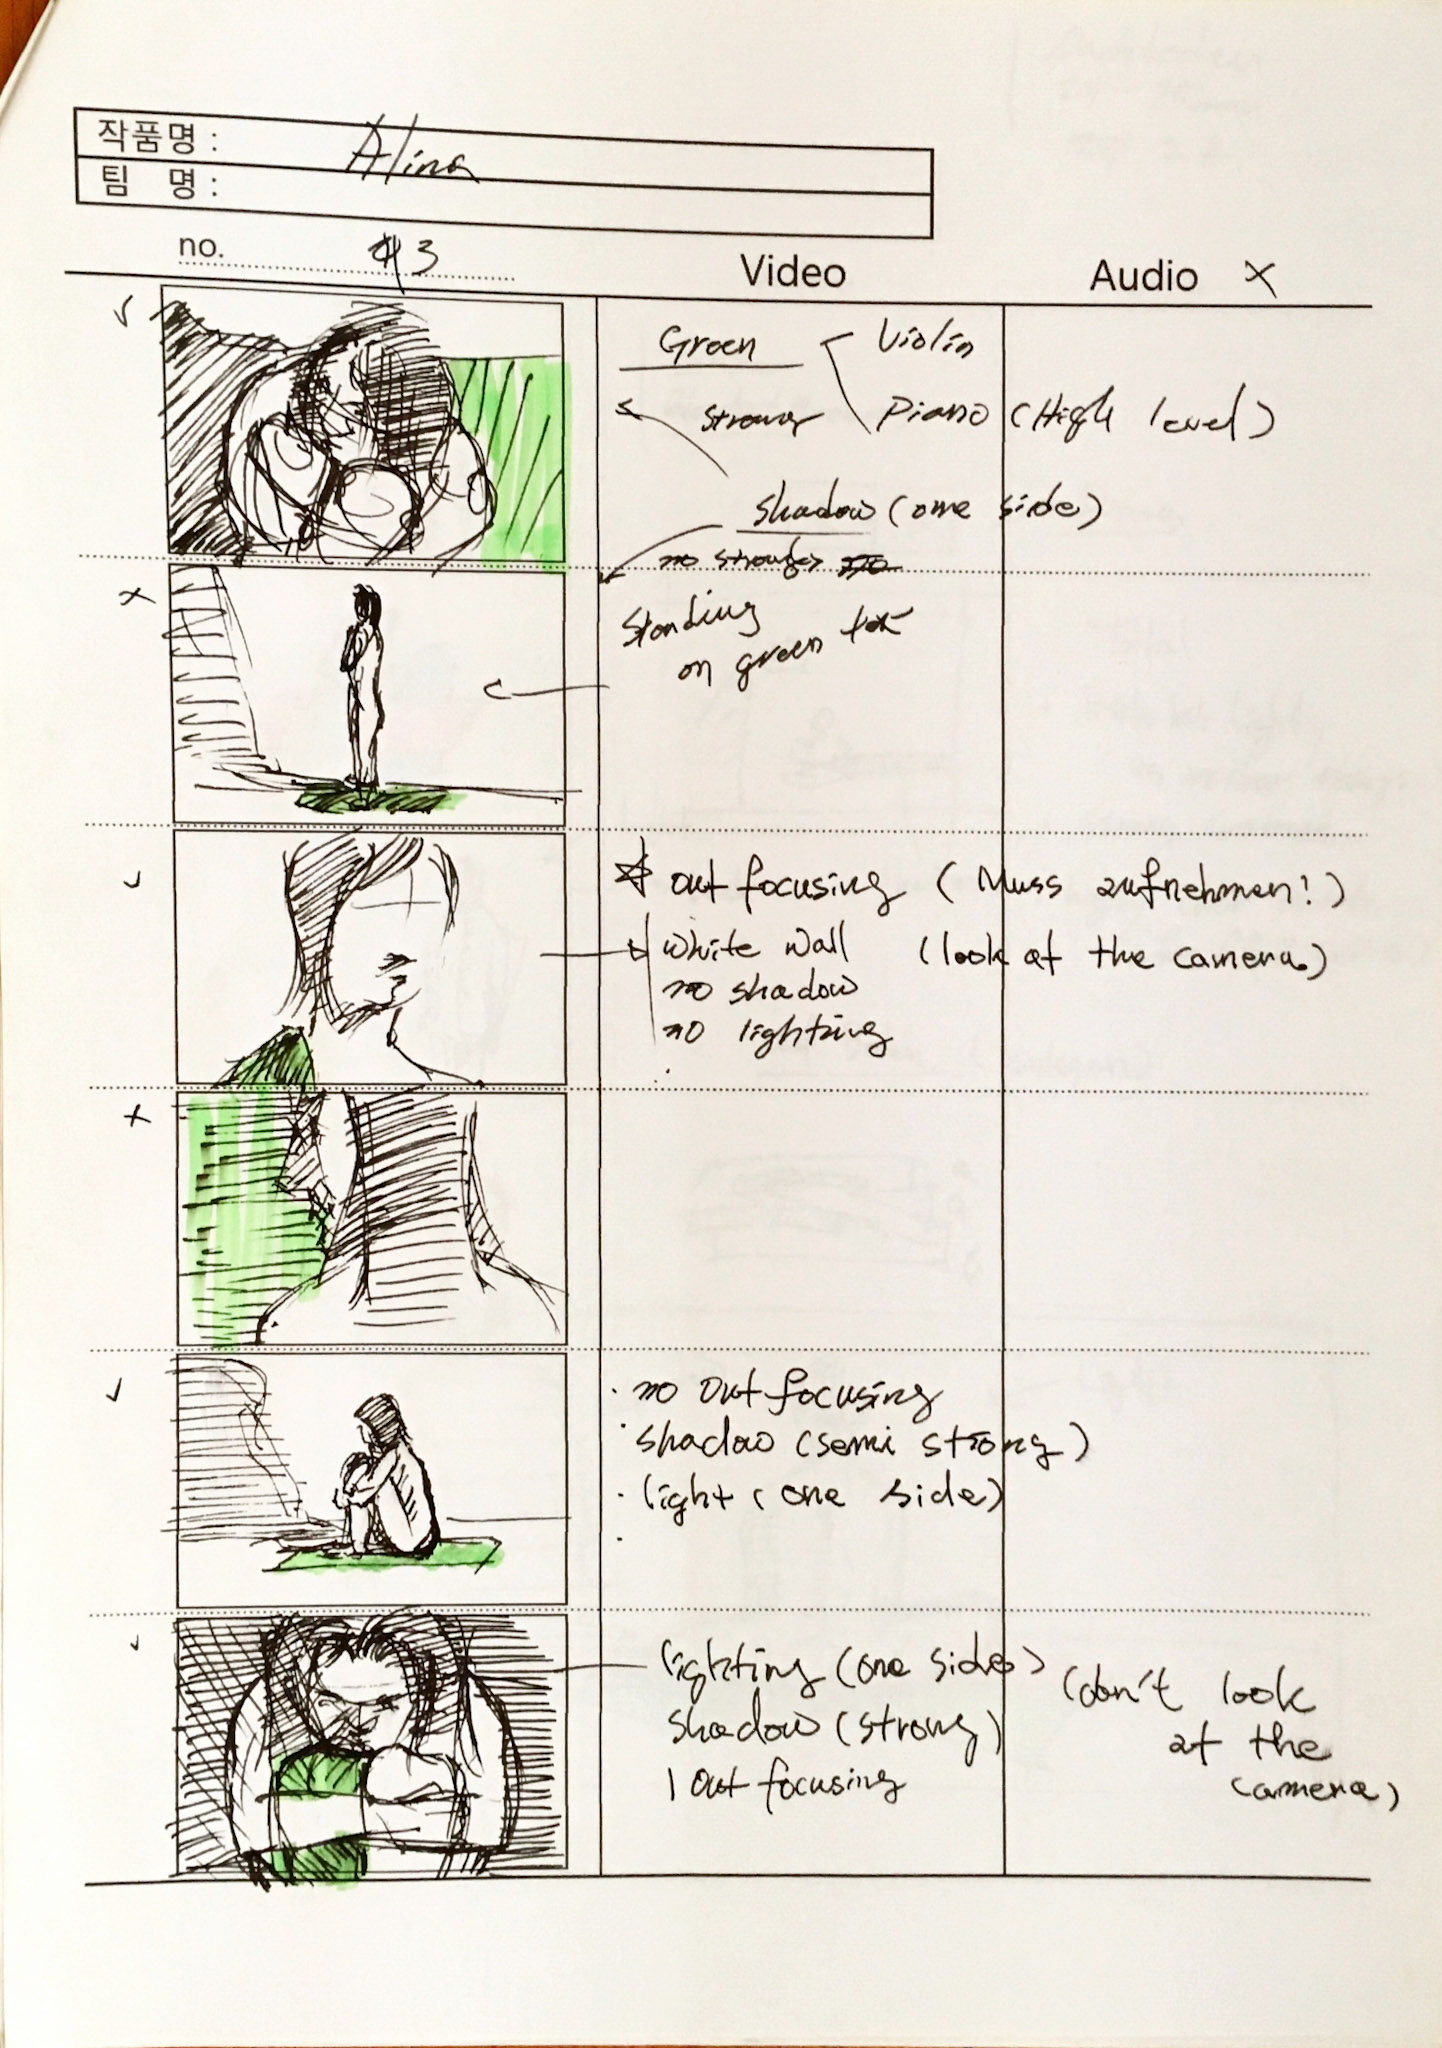 작품명 : Alina
팀 명 :
no. #3
Video
Audio X
Green
Violin
strong
Piano (High level)
shadow (one side)
no strong
standing
on green
out focusing (Muss aufnehmen!)
white wall (look at the camera.)
no shadow
no lighting
· no out focusing
· shadow (semi strong)
· light (one side)
lighting (one side)
shadow (strong)
out focusing
(don't look
at the
camera)